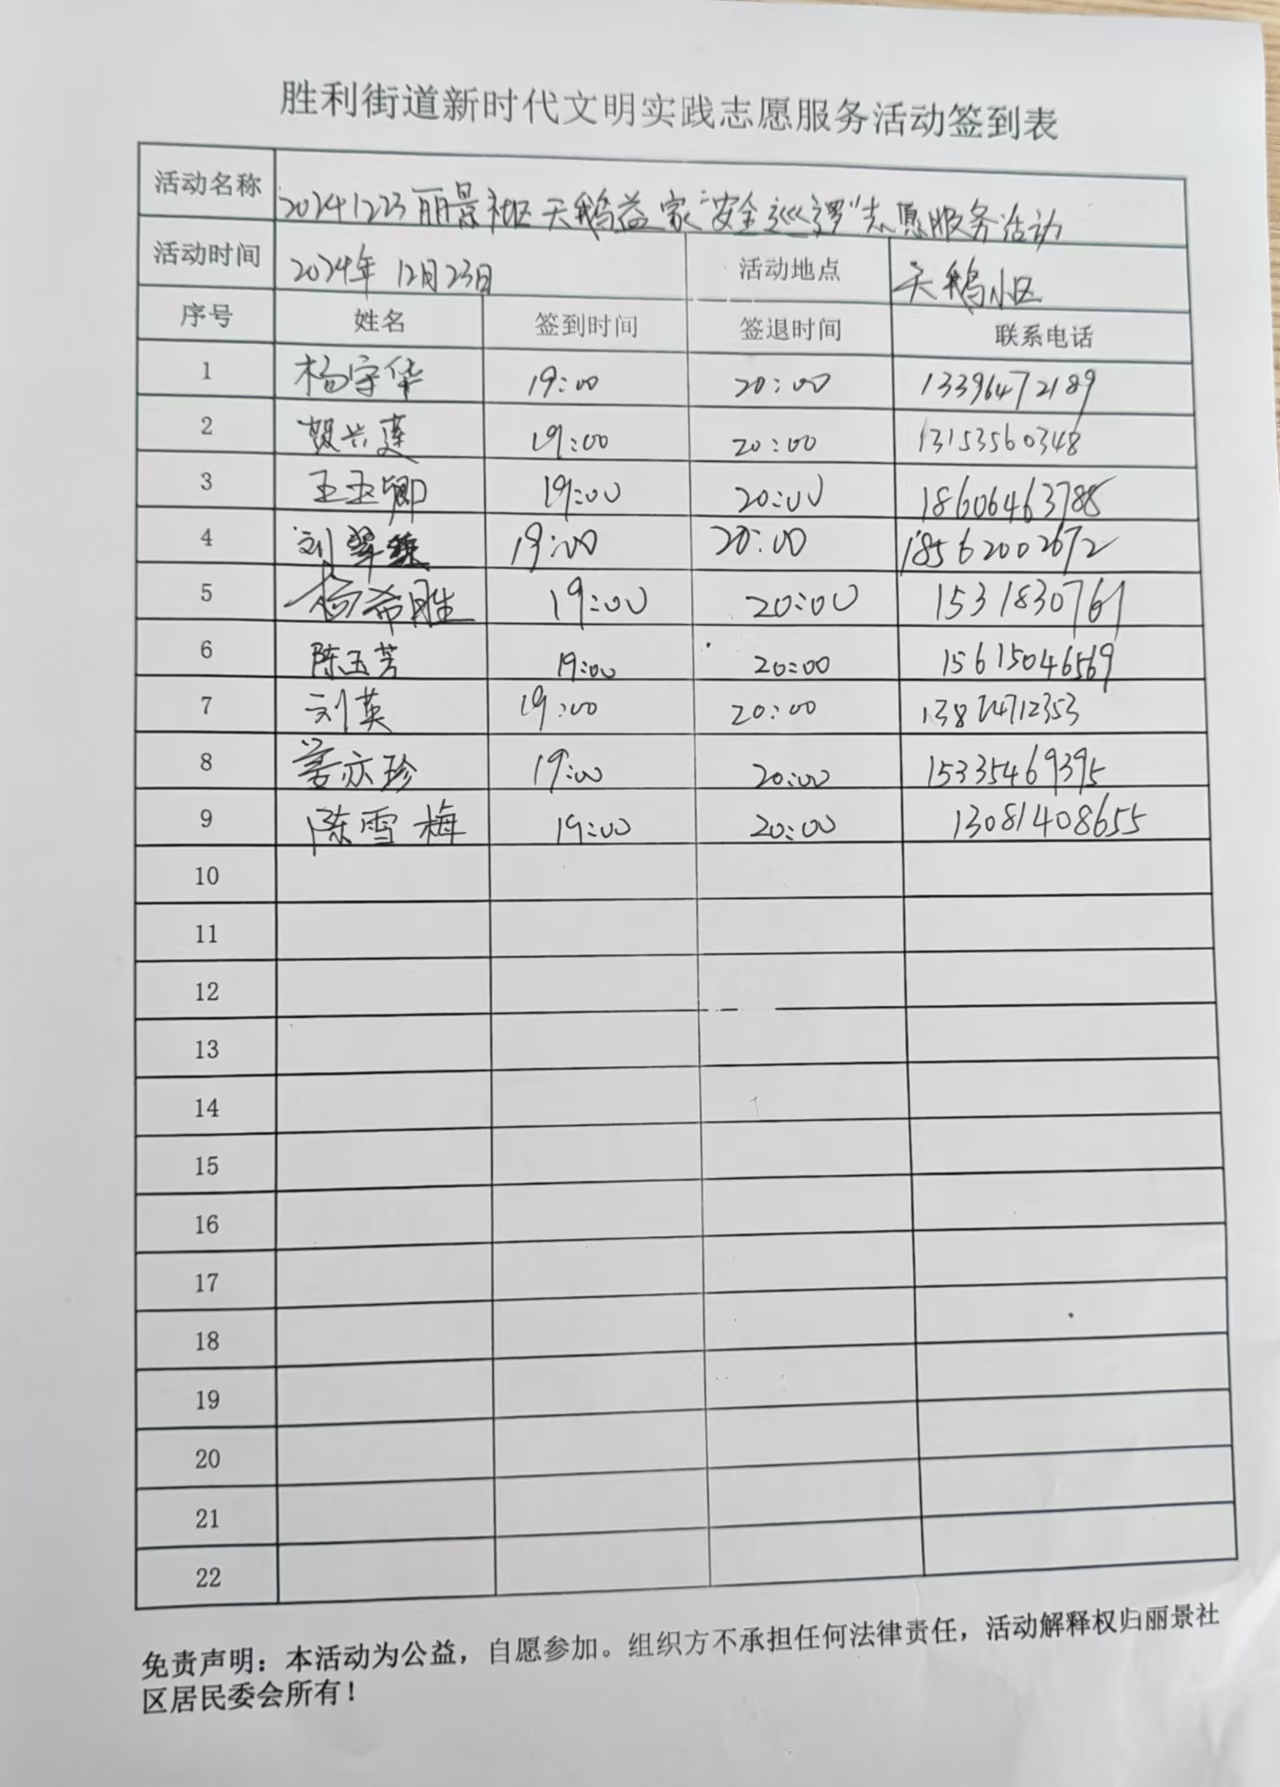 胜利街道新时代文明实践志愿服务活动签到表
活动名称 20241223丽景社区天鹅益家"安全巡逻"志愿服务活动
活动时间 2024年12月23日 活动地点 天鹅小区
序号 姓名 签到时间 签退时间 联系电话
1 杨守华 19:00 20:00 13396472189
2 贺兴莲 19:00 20:00 13153560348
3 王玉卿 19:00 20:00 18606463785
4 刘翠 19:00 20:00 18562002672
5 杨希胜 19:00 20:00 1531830761
6 陈玉芳 19:00 20:00 15615046569
7 刘英 19:00 20:00
8 姜亦珍 19:00 20:00 15335469395
9 陈雪梅 19:00 20:00 13081408655
10
11
12
13
14
15
16
17
18
19
20
21
22
免责声明：本活动为公益，自愿参加。组织方不承担任何法律责任，活动解释权归丽景社
区居民委会所有！